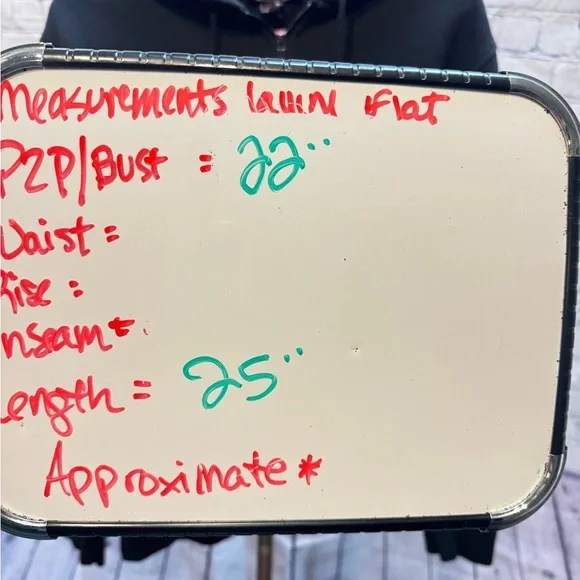 Measurements laying Flat
P2P/Bust = 22"
Waist =
Rise :
Inseam *
Length = 25"
Approximate *